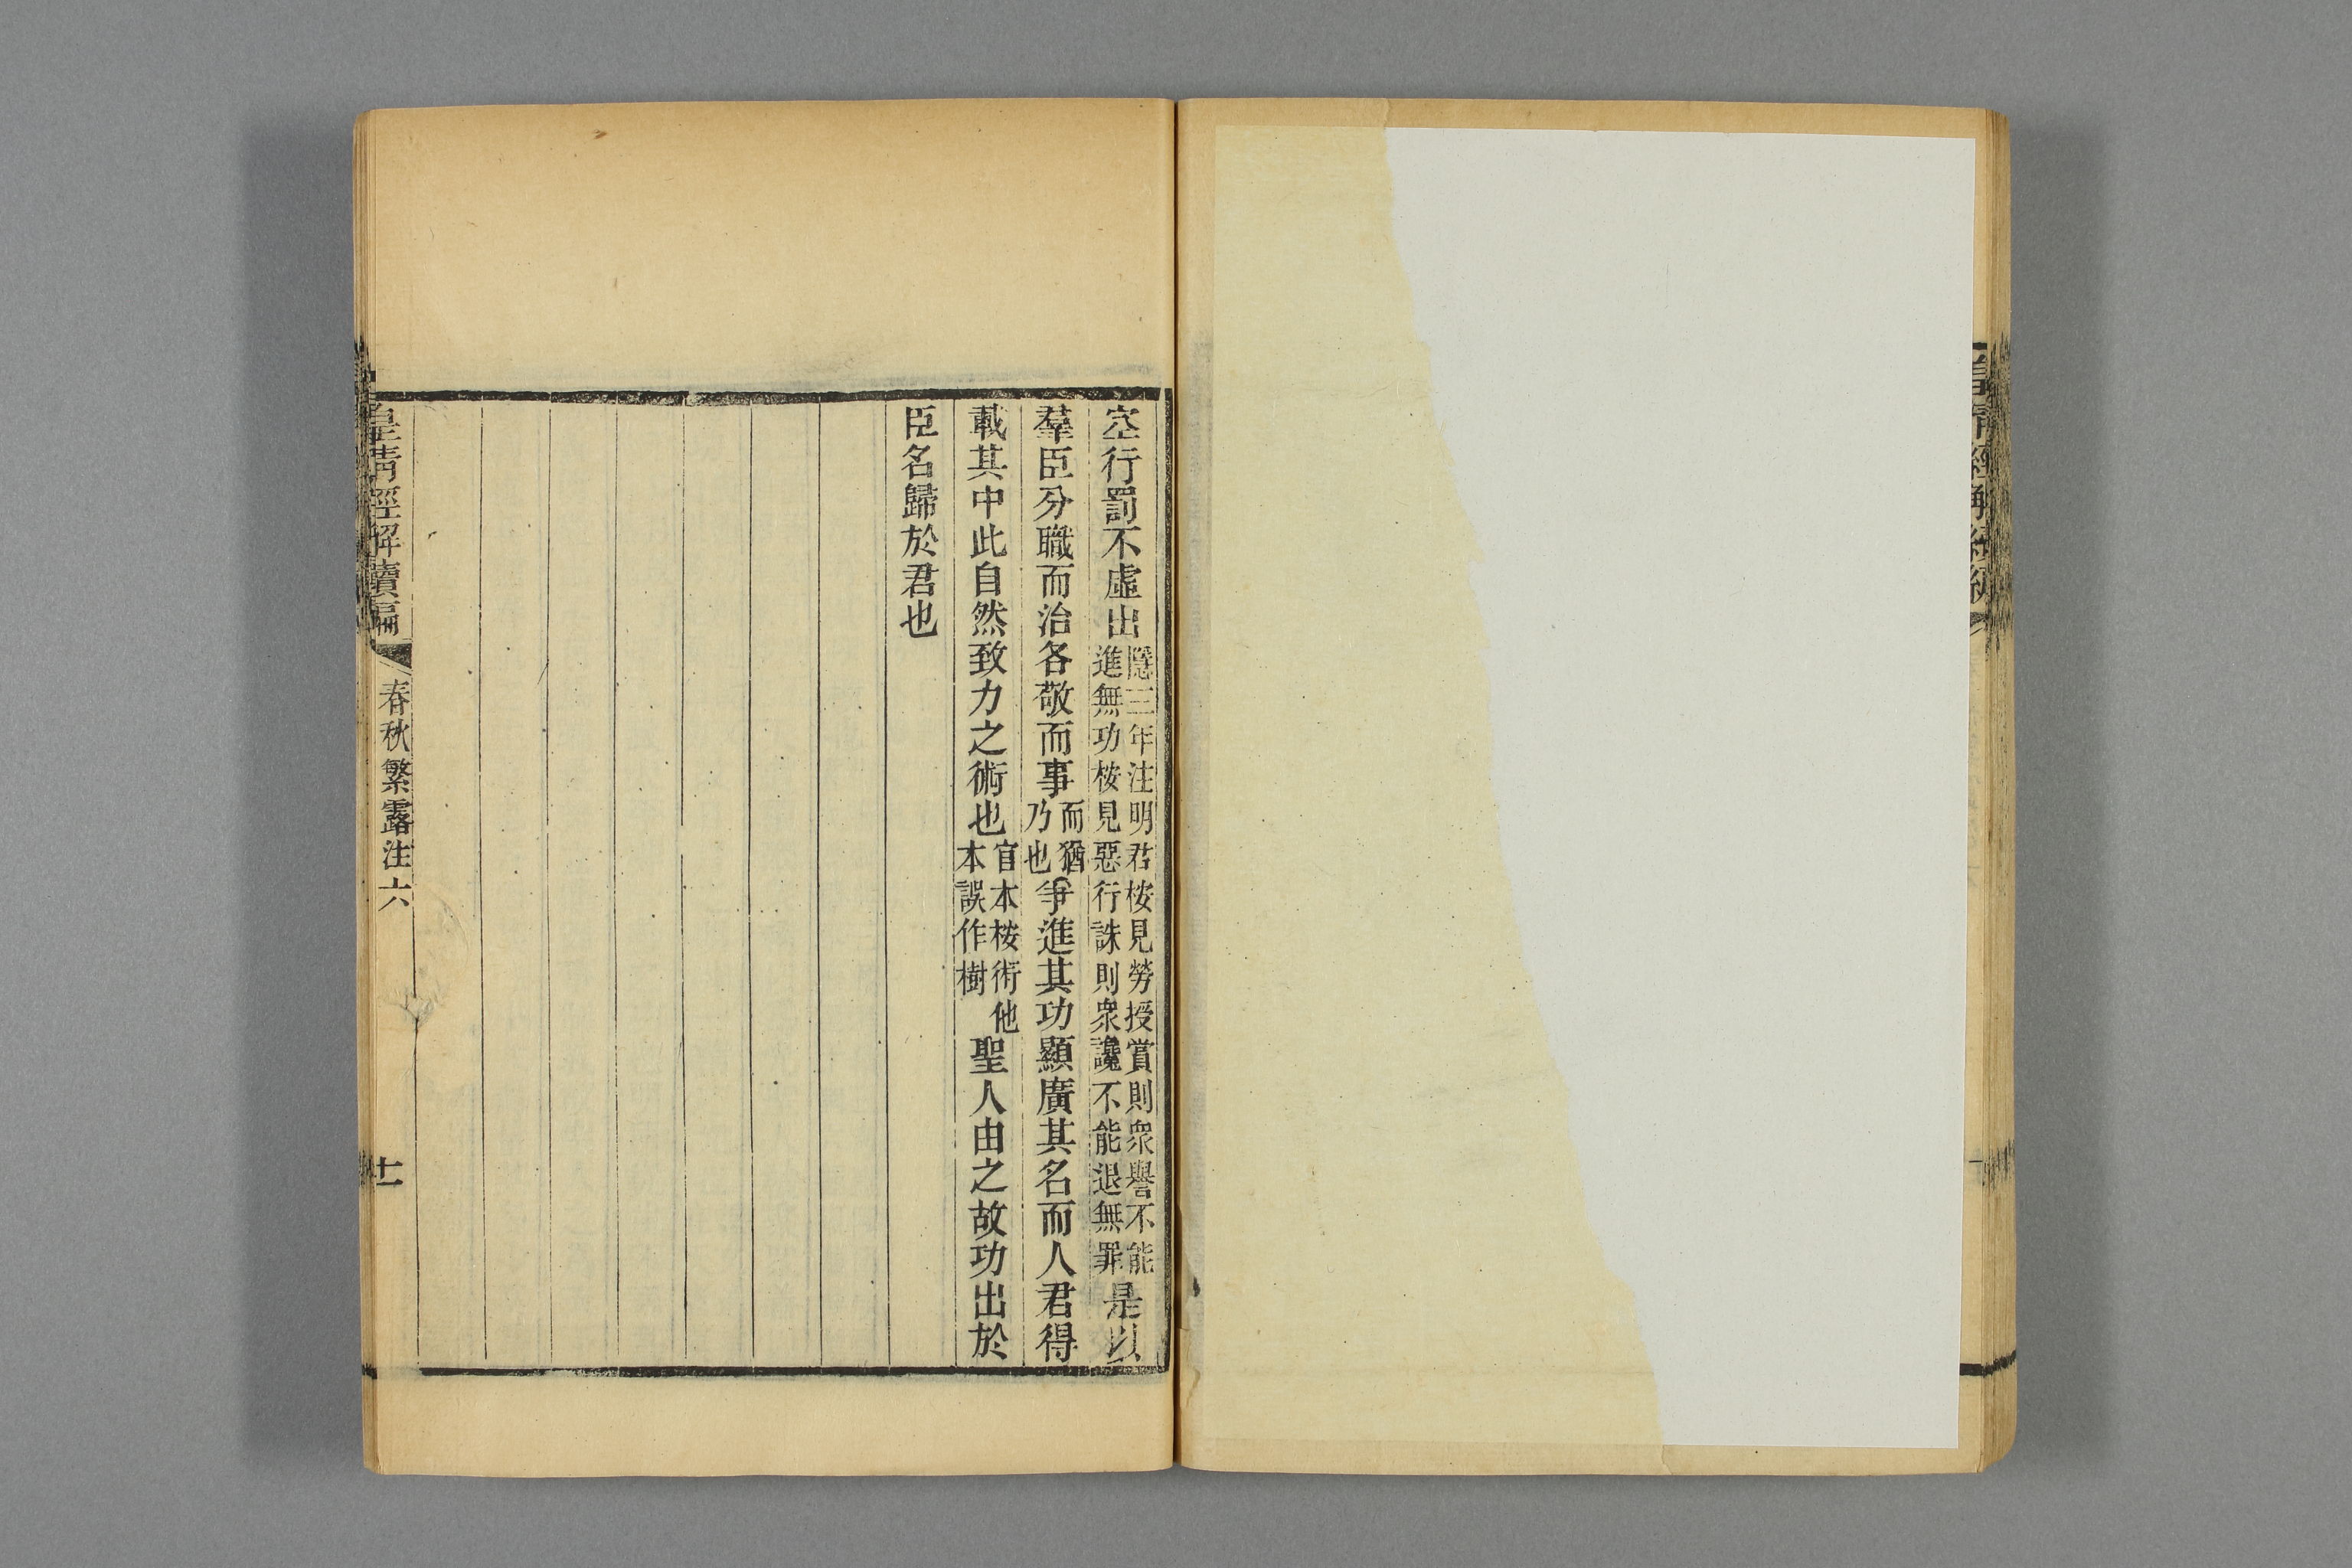 空行罰不虛出隱三年注明君桉見勞授賞則衆譽不能進無功桉見惡行誅則衆讒不能退無罪是以
羣臣分職而治各敬而事而猶乃也爭進其功顯廣其名而人君得
載其中此自然致力之術也官本桉術他本誤作樹聖人由之故功出於
臣名歸於君也
皇清經解續編
春秋繁露注六
十一
皇清經解續編